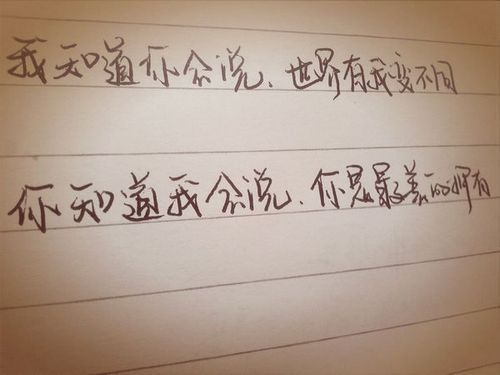 我知道你会说、世界有我变不同
你知道我会说、你是最美的拥有